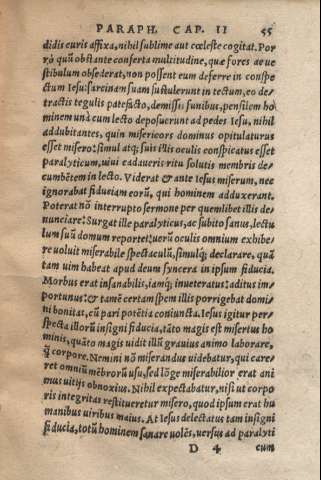 PARAPH. CAP. II 55
didis curis affixa, nihil sublime aut cœleste cogitat. Por
rò quũ obstante conserta multitudine, quæ fores ac ue
stibulum obsederat, non possent eum deferre in conspe
ctum Iesu: sarcinam suam sustulerunt in tectum, eo de
tractis tegulis patefacto, demissis funibus, pensilem ho
minem unà cum lecto deposuerunt ad pedes Iesu, nihil
addubitantes, quin misericors dominus opitulaturus
esset misero: simul atq; suis illis oculis conspicatus esset
paralyticum, uiui cadaueris ritu solutis membris de-
cumbẽtem in lecto. Viderat & ante Iesus miserum, nec
ignorabat fiduciam eorũ, qui hominem adduxerant.
Poterat nõ interrupto sermone per quemlibet illis de-
nunciare: Surgat ille paralyticus, ac subito sanus, lectu
lum suũ domum reportet: uerũ oculis omnium exhibe
re uoluit miserabile spectaculũ, simulq; declarare, quã
tam uim habeat apud deum syncera in ipsum fiducia.
Morbus erat insanabilis, iamq; inueteratus: aditus im
portunus: & tamẽ certam spem illis porrigebat domi
ni bonitat, cũ pari potẽtia coniuncta. Iesus igitur per-
specta illorũ insigni fiducia, tãto magis est misertus ho
minis, quãto magis uidit illũ grauius animo laborare,
q̃ corpore. Nemini nõ miserandus uidebatur, qui care
ret omniũ mẽbrorũ usu, sed lõge miserabilior erat ani
mus uitijs obnoxius. Nihil expectabatur, nisi ut corpo
ris integritas restitueretur misero, quod ipsum erat hu
manibus uiribus maius. At Iesus delectatus tam insigni
fiducia, totũ hominem sanare uolẽs, uersus ad paralyti
D 4 cum